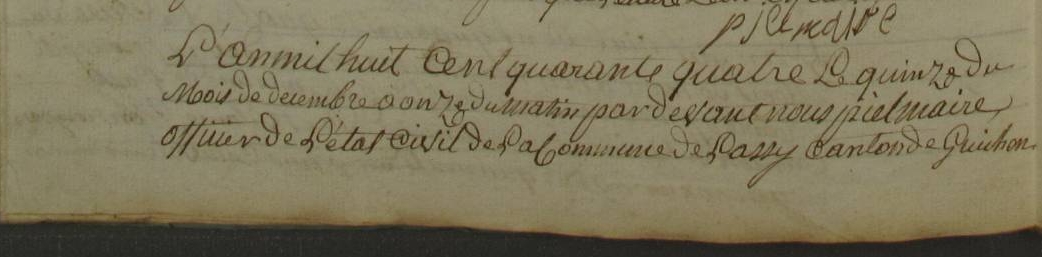 L'an mil huit cent quarante quatre Le quinze du
Mois de decembre a onze du matin par devant nous piel maire
officier de L'état Civil de La Commune de Lassy Canton de Guichen